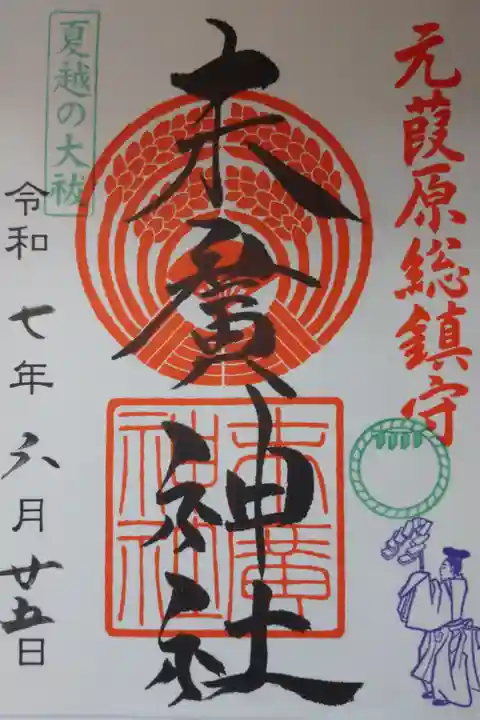 元葭原総鎮守
末廣神社
末廣
神社
夏越の大祓
令和七年六月廿五日